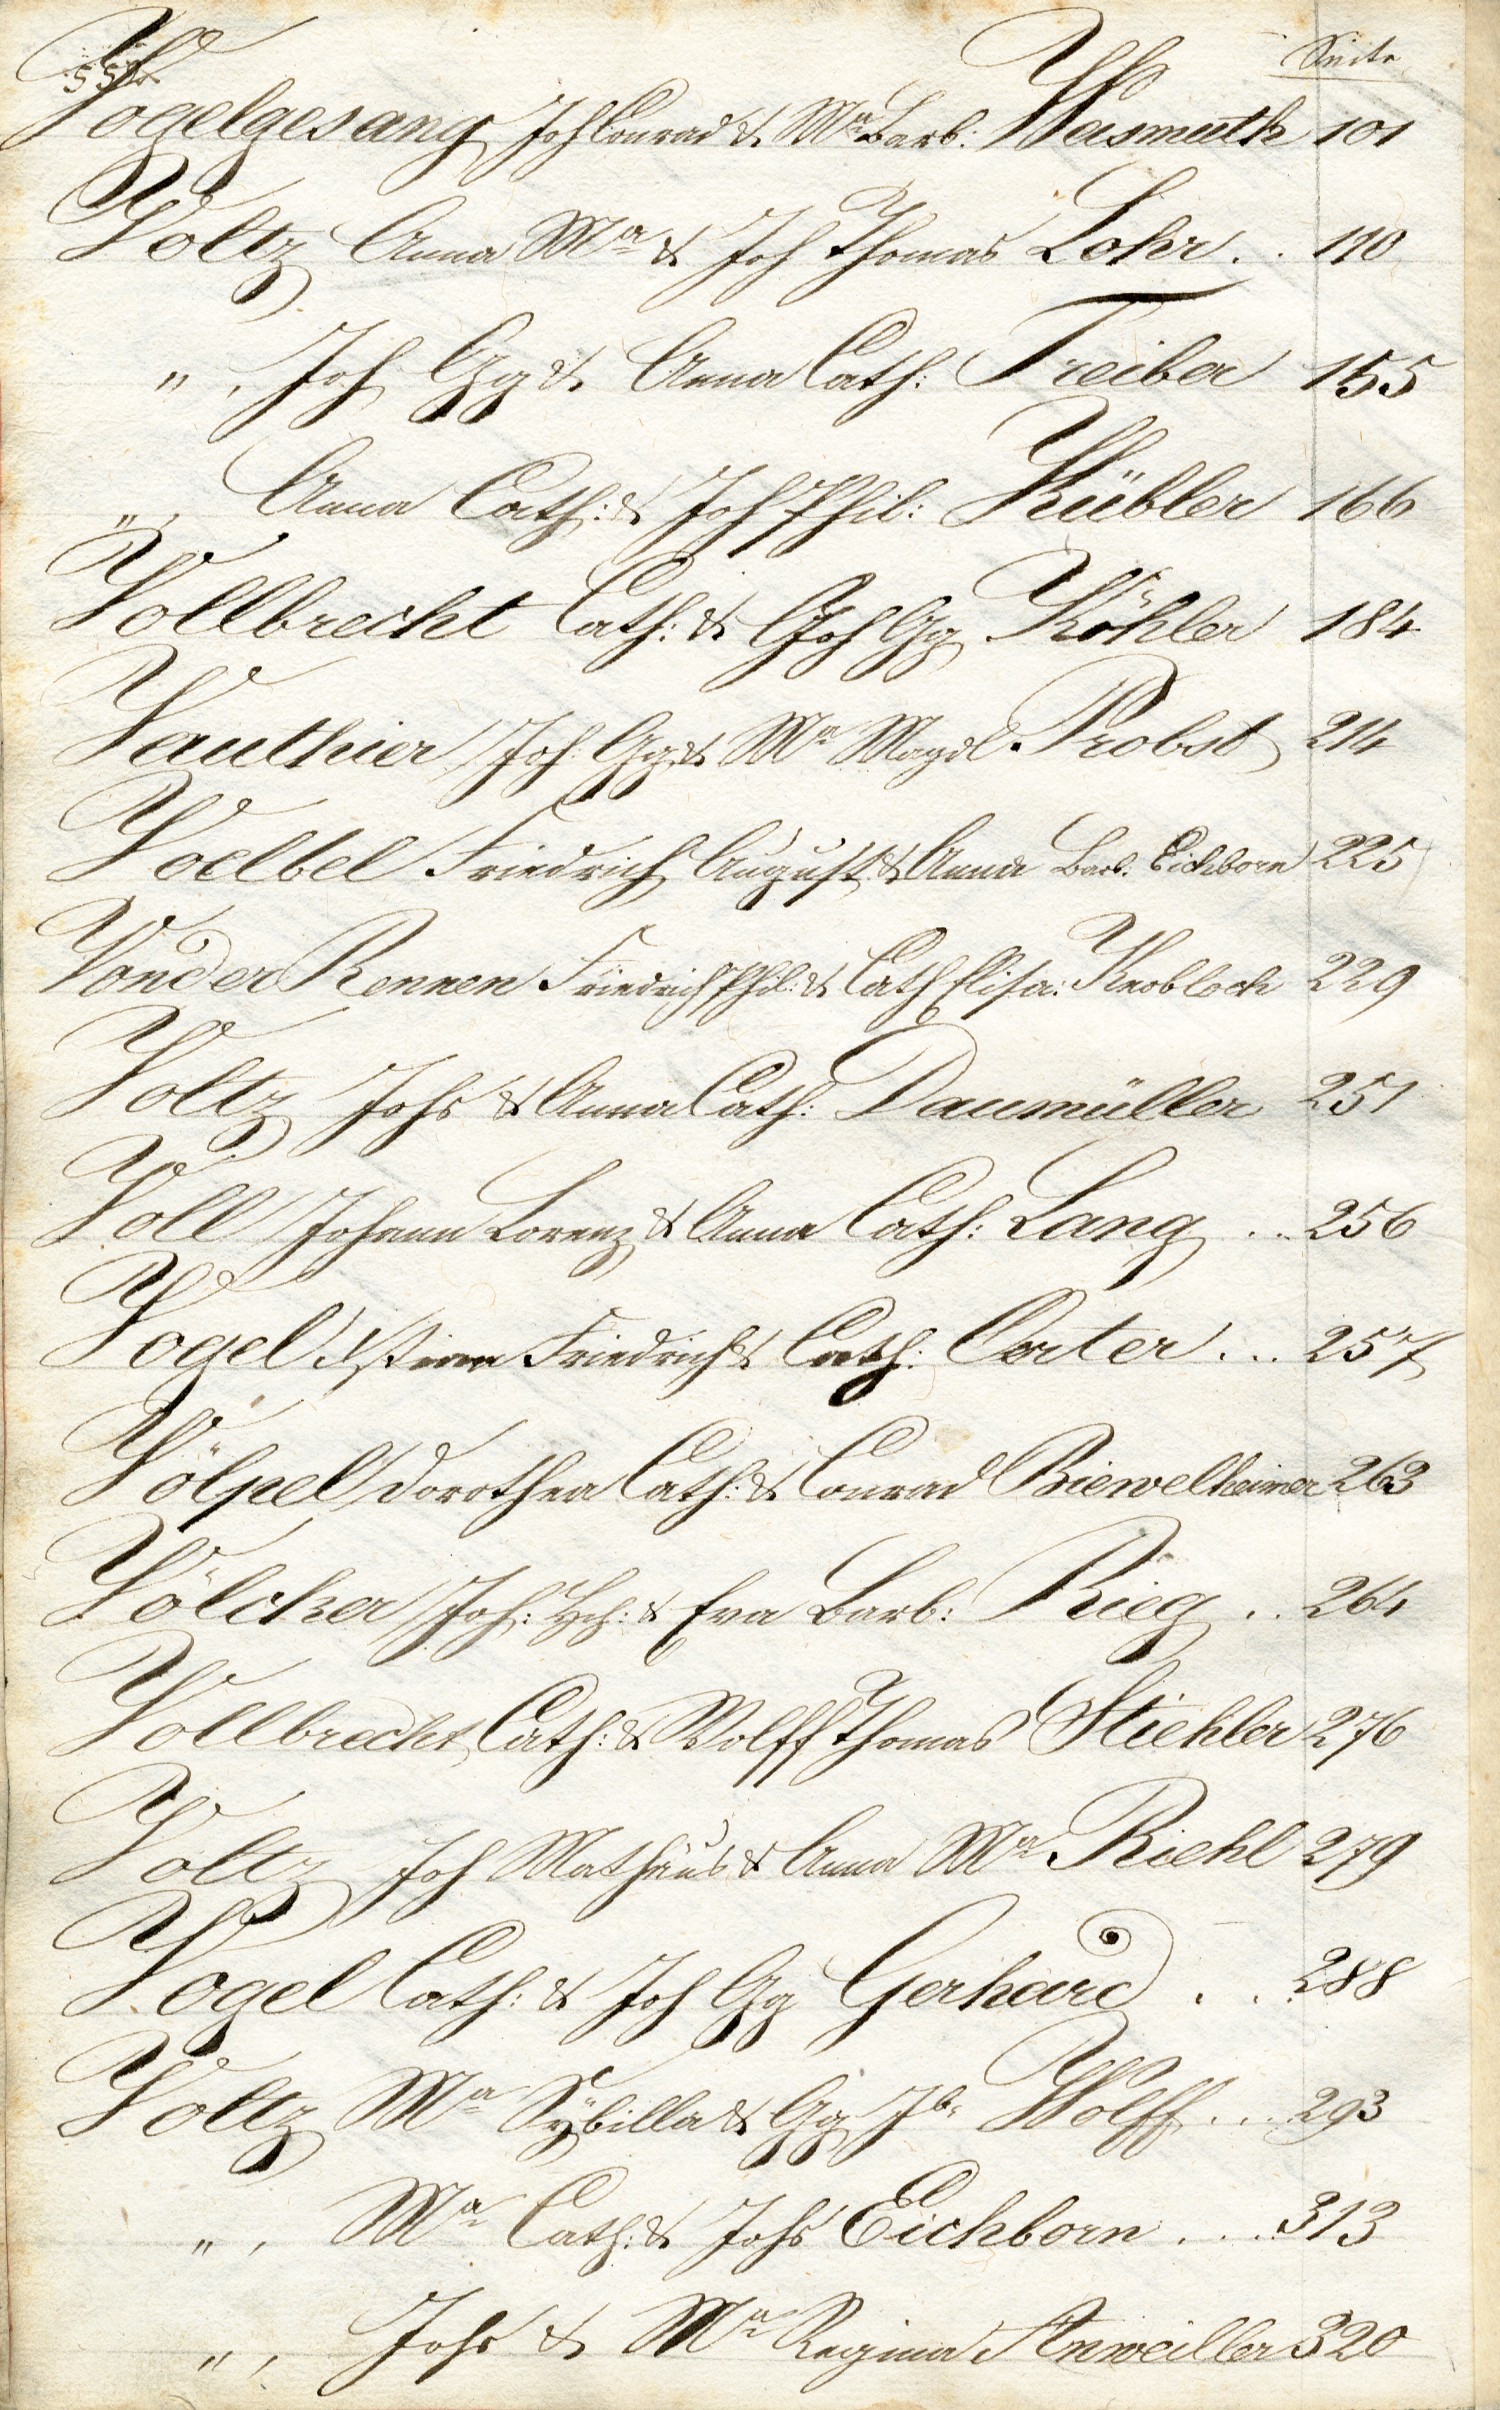 Seite
Vogelgesang Joh Conrad & Mª Barb: Wasmuth 101
Voltz Anna Mª & Joh Thomas Lohr . . 110
" , Joh Gg & Anna Cath: Treiber 155
" , Anna Cath: & Joh Phil: Kübler 166
Vollbrecht Cath: & Joh Gg Köhler 184
Vauthier Joh: Gg & Mª Magd. Probst 214
Voelbel Friedrich August & Anna Barb. Eichborn 225
Vonder Rennen Friedrich Phil: & Cath Elisa: Knobloch 229
Voltz Johs & Anna Cath: Daumüller 251
Voll Johann Lorenz & Anna Cath: Lang . . 256
Vogel Friedrich & Cath: Orter . . . 257
Völpel Dorothea Cath: & Conrad Biewelheimer 263
Völcker Joh: Hch: & Eva Barb: Rieg . . 264
Vollbrecht Cath: & Wolff Thomas Stiehler 276
Voltz Joh Mathäus & Anna Mª Riehl 279
Vogel Cath: & Joh Gg Gerhard . . 288
Voltz Mª Sybilla & Gg Jb. Wolff . . . 293
" , Mª Cath: & Johs Eichborn . . . 313
" , Johs & Mª Regina Anweiller 320